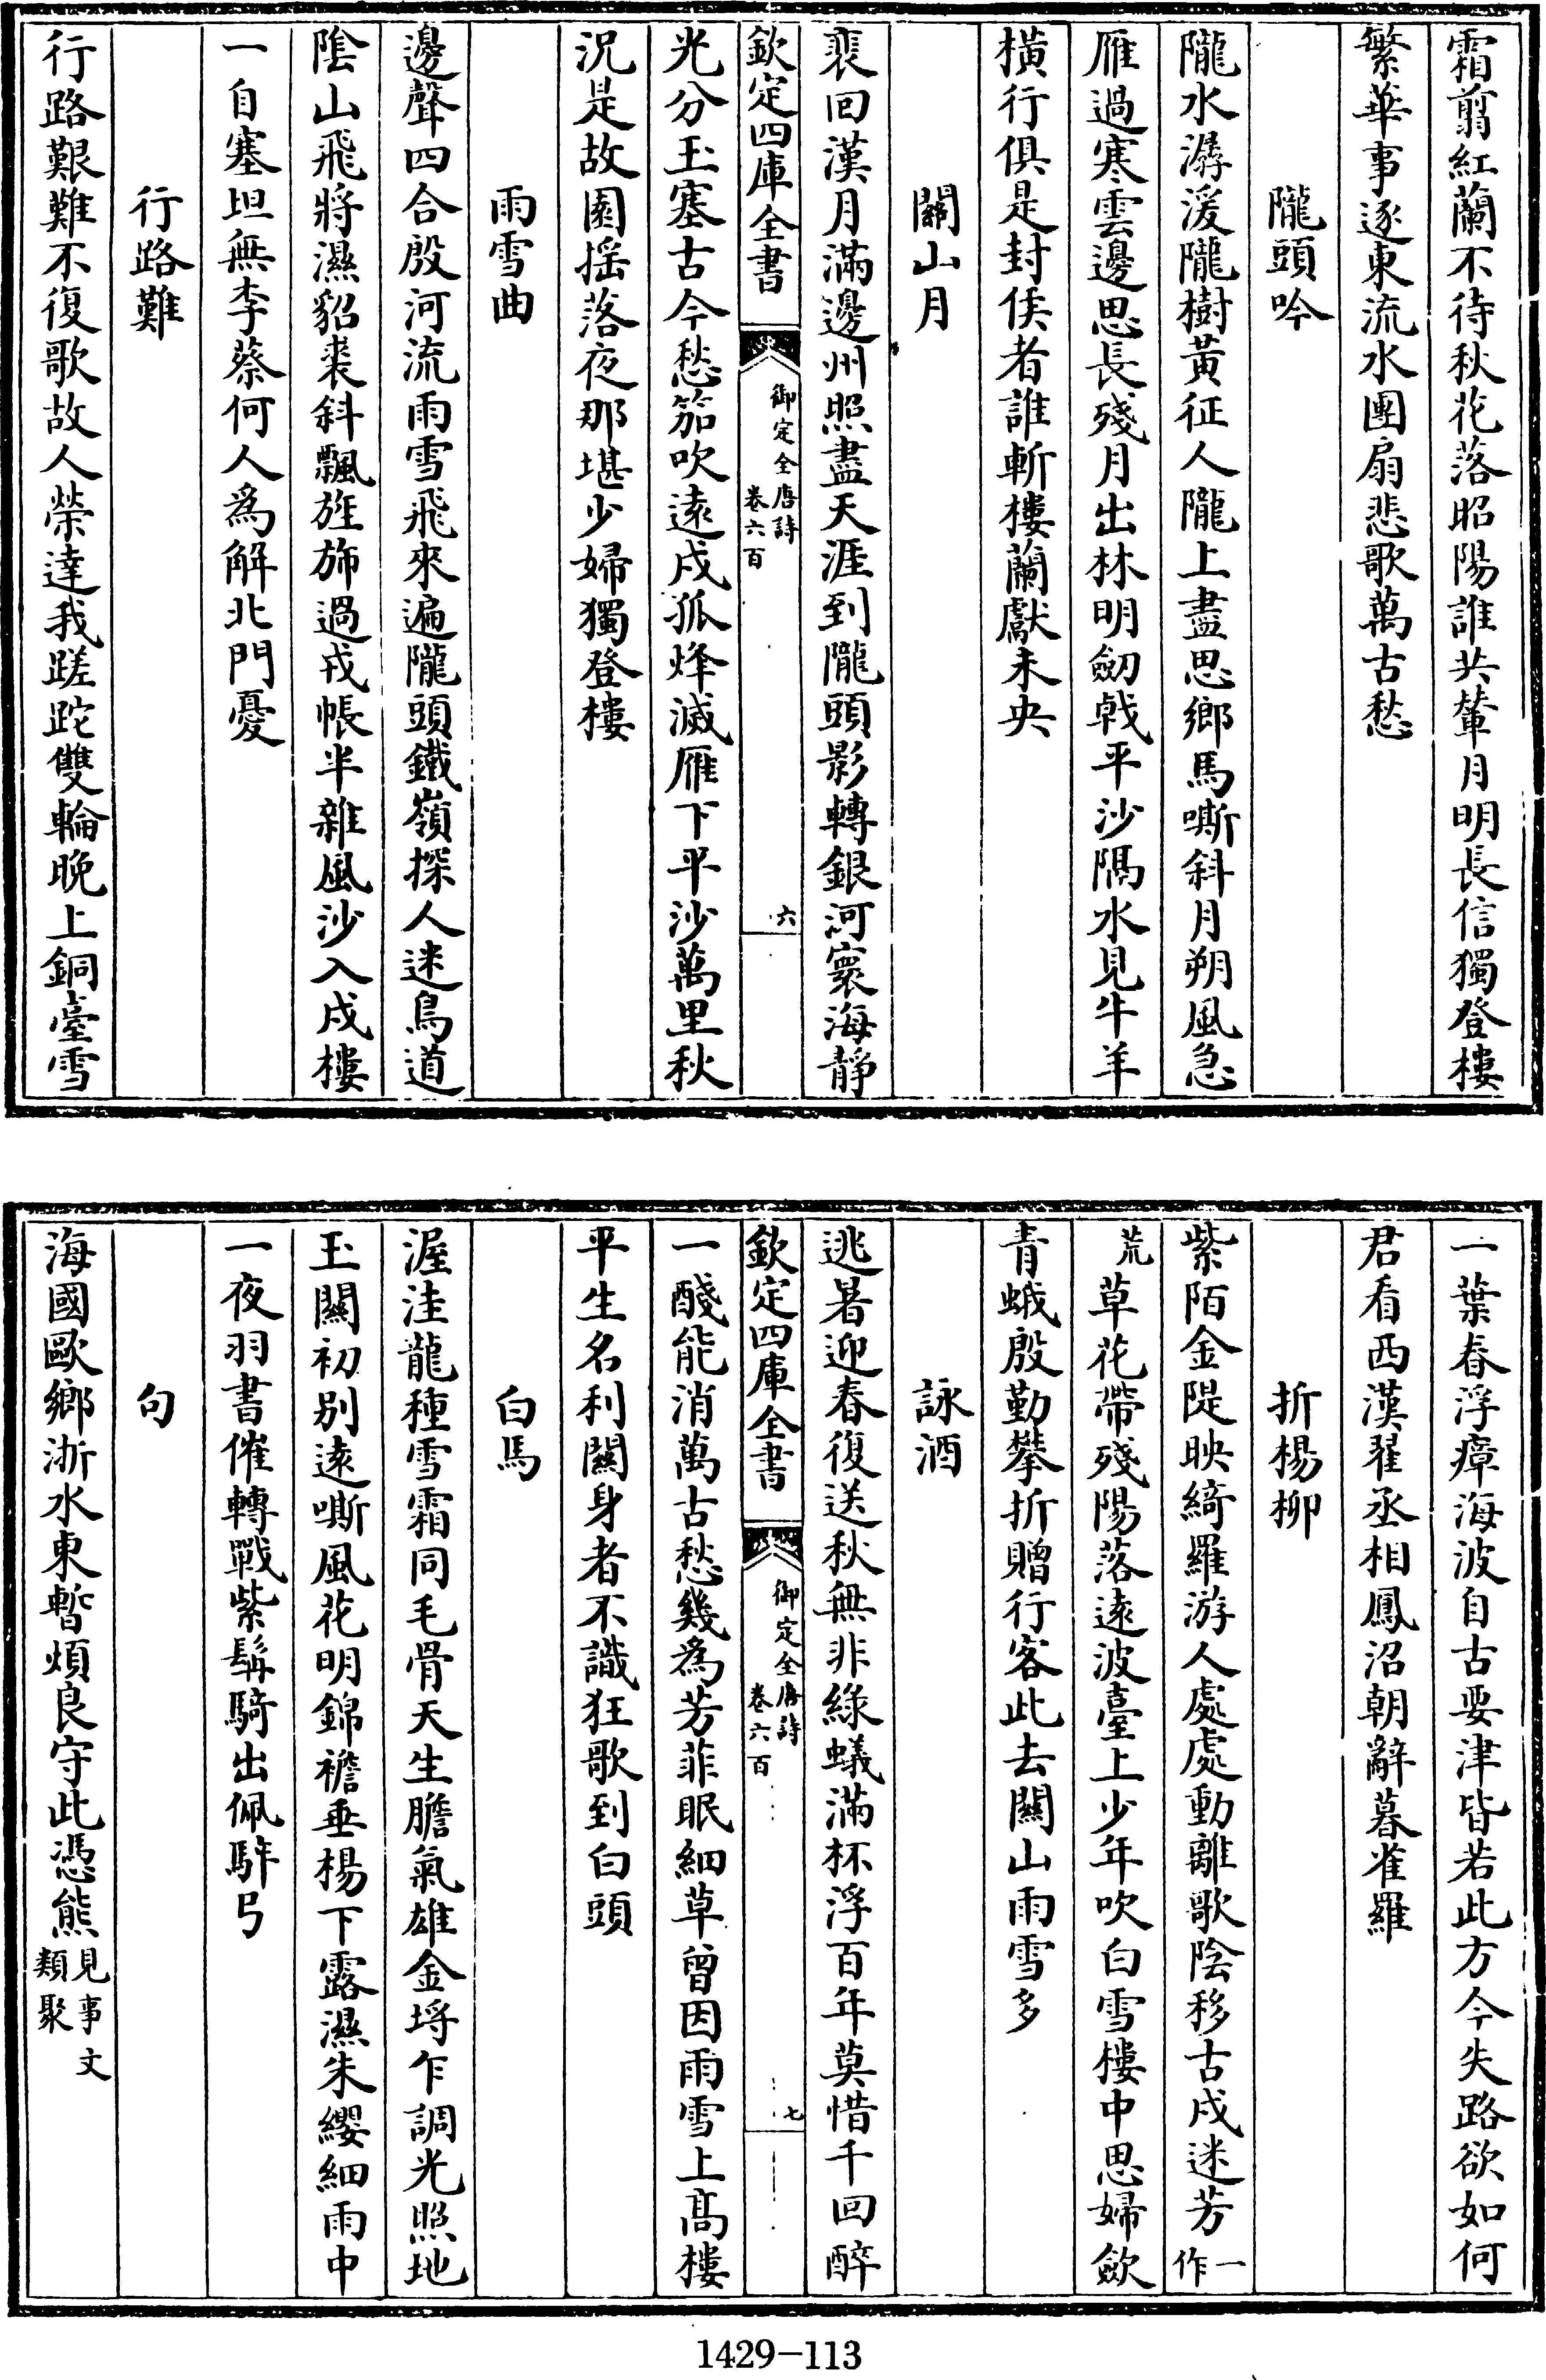 霜翦紅蘭不待秋花落昭陽誰共輦月明長信獨登樓
繁華事逐東流水團扇悲歌萬古愁
隴頭吟
隴水潺湲隴樹黃征人隴上盡思鄉馬嘶斜月朔風急
雁過寒雲邊思長殘月出林明劒戟平沙隔水見牛羊
橫行俱是封侯者誰斬樓蘭獻未央
關山月
裵回漢月滿邊州照盡天涯到隴頭影轉銀河寰海靜
欽定四庫全書
御定全唐詩
卷六百
六
光分玉塞古今愁笳吹遠戍孤烽滅雁下平沙萬里秋
況是故園揺落夜那堪少婦獨登樓
雨雪曲
邊聲四合殷河流雨雪飛來遍隴頭鐵嶺探人迷鳥道
陰山飛將濕貂裘斜飄旌斾過戎帳半雜風沙入戍樓
一自塞垣無李蔡何人爲解北門憂
行路難
行路艱難不復歌故人榮達我蹉跎雙輪晚上銅臺雪
一葉春浮瘴海波自古要津皆若此方今失路欲如何
君看西漢翟丞相鳳沼朝辭暮雀羅
折楊柳
紫陌金隄映綺羅游人處處動離歌陰移古戍迷芳一作
荒草花帶殘陽落遠波臺上少年吹白雪樓中思婦歛
青蛾殷勤攀折贈行客此去關山雨雪多
詠酒
逃暑迎春復送秋無非綠蟻滿杯浮百年莫惜千回醉
欽定四庫全書
御定全唐詩
卷六百
七
一醆能消萬古愁幾爲芳菲眠細草曾因雨雪上髙樓
平生名利關身者不識狂歌到白頭
白馬
渥洼龍種雪霜同毛骨天生膽氣雄金埒乍調光照地
玉關初别遠嘶風花明錦襜垂楊下露濕朱纓細雨中
一夜羽書催轉戰紫髯騎出佩騂弓
句
海國歐鄉浙水東暫煩良守此憑熊見事文類聚
1429-113